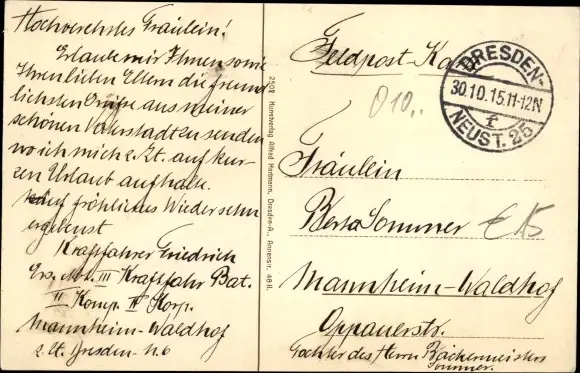 Hochverehrtes Fräulein!
Erlaube mir Ihnen sowie
Ihren lieben Eltern die freund
lichsten Grüße aus meiner
schönen Vaterstadt zu senden
wo ich mich z. Zt. auf kur-
zen Urlaub aufhalte.
Auf fröhliches Wiedersehn
ergebenst
Kraftfahrer Friedrich
Ers. Abt. III Kraftfahr Bat.
II Komp. IV Korp.
Mannheim-Waldhof
z. Zt. Dresden-N. 6
2503 Kunstverlag Alfred Hartmann, Dresden-A., Annenstr. 48 II.
Feldpost-Ka
DRESDEN-
30.10.15.11-12N
f
NEUST. 25
010..
Fräulein
Berta Sommer
€ 15
Mannheim-Waldhof
Oppauerstr.
Tochter des Herrn Bäckermeisters
Sommer.